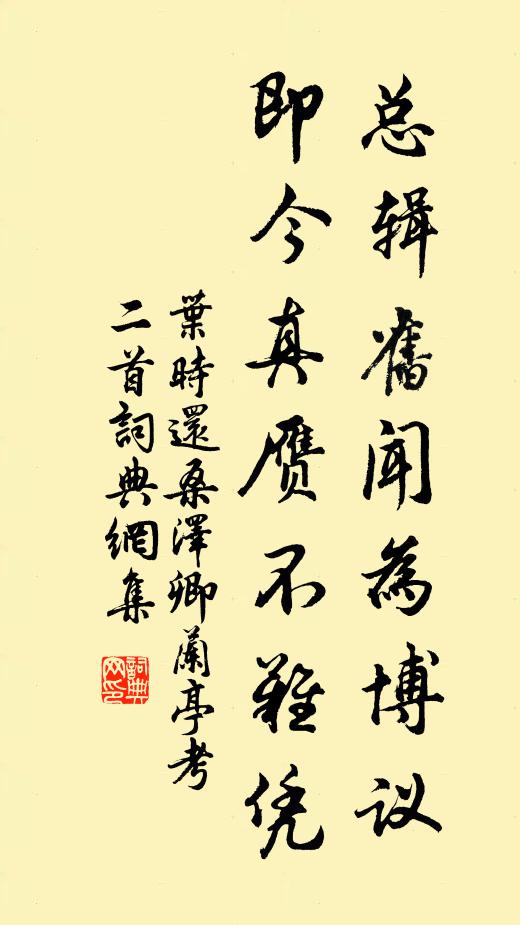 总辑舊闻為博议
即今真赝不難凭
葉時還桑澤卿蘭亭考
二首詞典網集
詞典網印